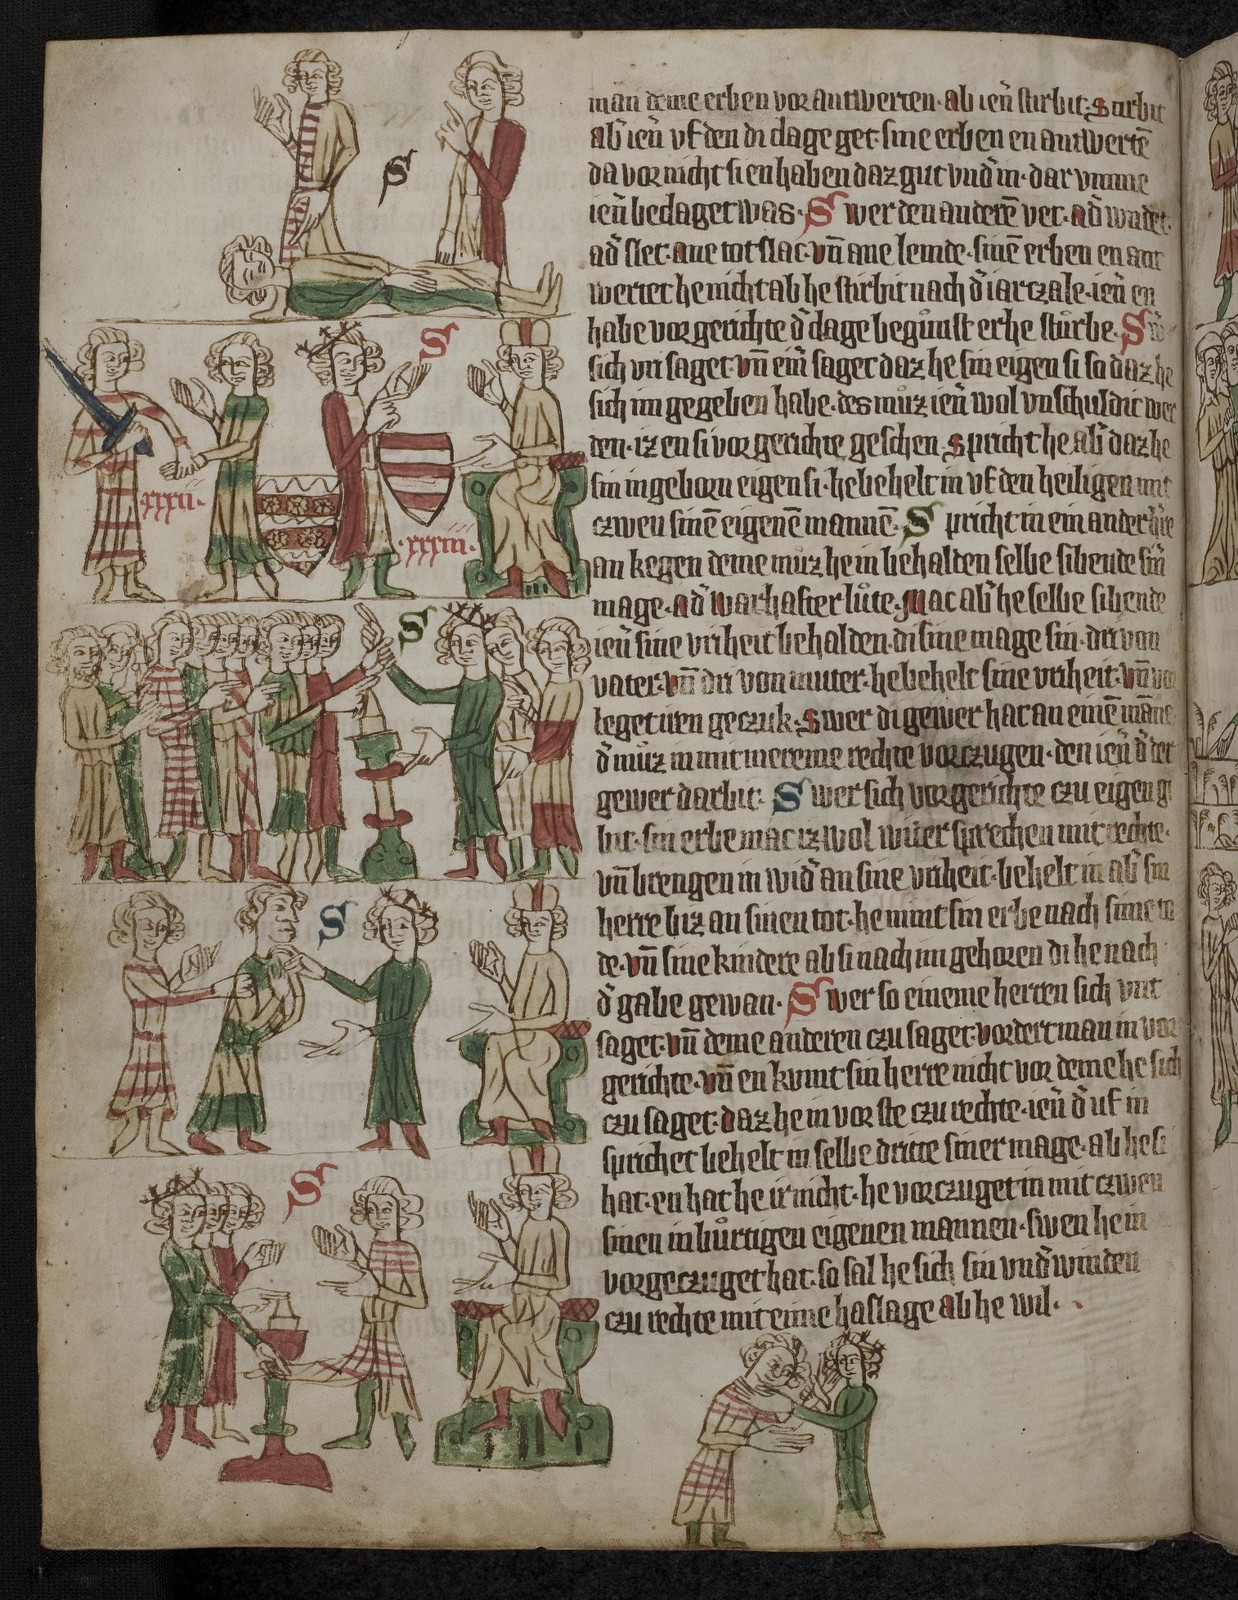 S
S
.xxxii.
.xxxiii.
S
S
S
man deme erben vor antwerten· ab ien̄ stirbit· Stirbit
ab̓ ien̄ vf den di clage get· sine erben en antwertē
da vor nicht si en haben daz gut vnd̓ in· dar vmme
ien̄ beclaget was· Swer den anderē vet· ad̓ wndet·
ad̓ slet· ane tot slac· vn̄ ane lemde· sinē erben en ant
wertet he nicht ab he stirbit nach d̓ iar czale· ien̄ en
habe vor gerichte d̓ clage begůnst er he stůrbe· S
sich vri saget· vn̄ ein̄ saget daz he sin eigen si so daz he
sich im gegeben habe· des můz ien̄ wol vnschuldic wer
den· iz en si vor gerichte geschen· Spricht he ab̓ daz he
sin ingeborn eigen si· he behelt in vf den heiligen mit
czwen sinē eigenē mannē· Spricht in ein ander h̓re
an kegen deme můz he in behalden selbe sibende sin̄
mage· ad̓ warhafter lůte· Mac ab̓ he selbe sibende
ien̄ sine vriheit behalden· di sine mage sin· dri von
vater· vn̄ dri von muter· he behelt sine vriheit· vn̄ vor
leget iren geczuk· Swer di gewer hat an einē māne
d̓ můz in mit mereme rechte vorczugen· den ien̄ d̓ der
gewer darbit· Swer sich vor gerichte czu eigen gi
bit· sin erbe mac iz wol wider sprechen mit rechte·
vn̄ brengen in wid̓ an sine vriheit· behelt in ab̓ sin
herre biz an sinen tot· he nimt sin erbe nach sime to
de· vn̄ sine kindere ab si nach im gehoren di he nach
d̓ gabe gewan· Swer so eineme herren sich vnt
saget· vn̄ deme anderen czu saget· vordert man in vor
gerichte· vn̄ en kvmt sin herre nicht vor deme he sich
czu saget· daz he in vor ste czu rechte· ien̄ d̓ uf in
sprichet behelt in selbe dritte siner mage· ab he si
hat· en hat he ir nicht· he vorczuget in mit czwen
sinen inbůrtigen eigenen mannen· swen he in
vorgeczuget hat· so sal he sich sin vnd̓ winden
czu rechte mit eime halslage ab he wil·